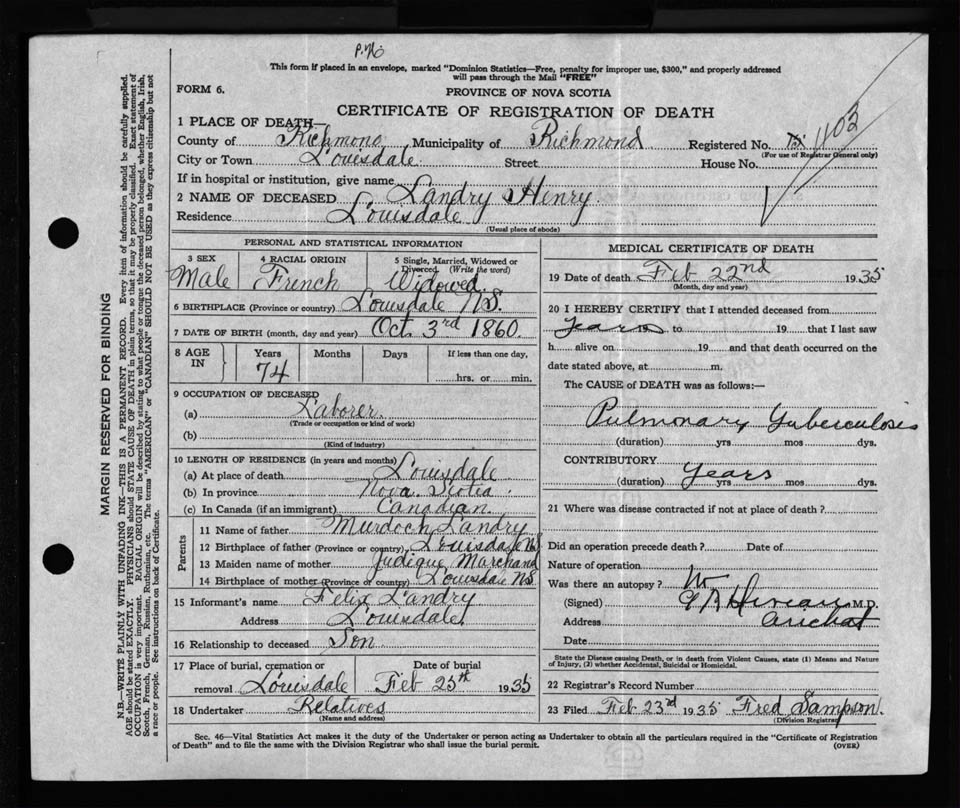 This form if placed in an envelope, marked "Dominion Statistics—Free, penalty for improper use, $300," and properly addressed
will pass through the Mail "FREE"
FORM 6.
PROVINCE OF NOVA SCOTIA
CERTIFICATE OF REGISTRATION OF DEATH
1 PLACE OF DEATH—
County of Richmond Municipality of Richmond Registered No. 1103
(For use of Registrar General only)
City or Town Louisdale Street House No.
If in hospital or institution, give name
2 NAME OF DECEASED Landry Henry
Residence Louisdale
(Usual place of abode)
PERSONAL AND STATISTICAL INFORMATION
3 SEX 4 RACIAL ORIGIN 5 Single, Married, Widowed or Divorced (Write the word)
Male French Widowed
6 BIRTHPLACE (Province or country) Louisdale N.S.
7 DATE OF BIRTH (month, day and year) Oct. 3rd 1860
8 AGE IN Years Months Days If less than one day,
74 hrs. or min.
9 OCCUPATION OF DECEASED
(a) Laborer
(Trade or occupation or kind of work)
(b)
(Kind of industry)
10 LENGTH OF RESIDENCE (in years and months)
(a) At place of death Louisdale
(b) In province Nova Scotia
(c) In Canada (if an immigrant) Canadian
Parents
11 Name of father Murdoch Landry
12 Birthplace of father (Province or country) Louisdale NS
13 Maiden name of mother Judique Marchand
14 Birthplace of mother (Province or country) Louisdale NS
15 Informant's name Felix Landry
Address Louisdale
16 Relationship to deceased Son
17 Place of burial, cremation or removal Date of burial
Louisdale Feb 25th 1935
18 Undertaker Relatives
(Name and address)
MEDICAL CERTIFICATE OF DEATH
19 Date of death Feb 22nd 1935
(Month, day and year)
20 I HEREBY CERTIFY that I attended deceased from
Years 19 to 19 that I last saw
h alive on 19 and that death occurred on the
date stated above, at m.
The CAUSE of DEATH was as follows:—
Pulmonary Tuberculosis
(duration) yrs mos dys.
CONTRIBUTORY
Years
(duration) yrs mos dys.
21 Where was disease contracted if not at place of death?
Did an operation precede death? Date of
Nature of operation
Was there an autopsy?
(Signed) M.D.
Address Arichat
Date
State the Disease causing Death, or in death from Violent Causes, state (1) Means and Nature
of Injury, (2) whether Accidental, Suicidal or Homicidal.
22 Registrar's Record Number
23 Filed Feb 23rd 1935 Fred Sampson
(Division Registrar)
Sec. 46—Vital Statistics Act makes it the duty of the Undertaker or person acting as Undertaker to obtain all the particulars required in the "Certificate of Registration
of Death" and to file the same with the Division Registrar who shall issue the burial permit.
(OVER)
MARGIN RESERVED FOR BINDING
N.B.—WRITE PLAINLY WITH UNFADING INK—THIS IS A PERMANENT RECORD. Every item of information should be carefully supplied.
AGE should be stated EXACTLY. PHYSICIANS should STATE CAUSE OF DEATH in plain terms, so that it may be properly classified. Exact statement of
OCCUPATION is very important. RACIAL ORIGIN will be described by stating to what people or tongue the deceased person belonged, whether English, Irish,
Scotch, French, German, Russian, Ruthenian, etc. The terms "AMERICAN" or "CANADIAN" SHOULD NOT BE USED as they express citizenship but not
a race or people. See instructions on back of Certificate.